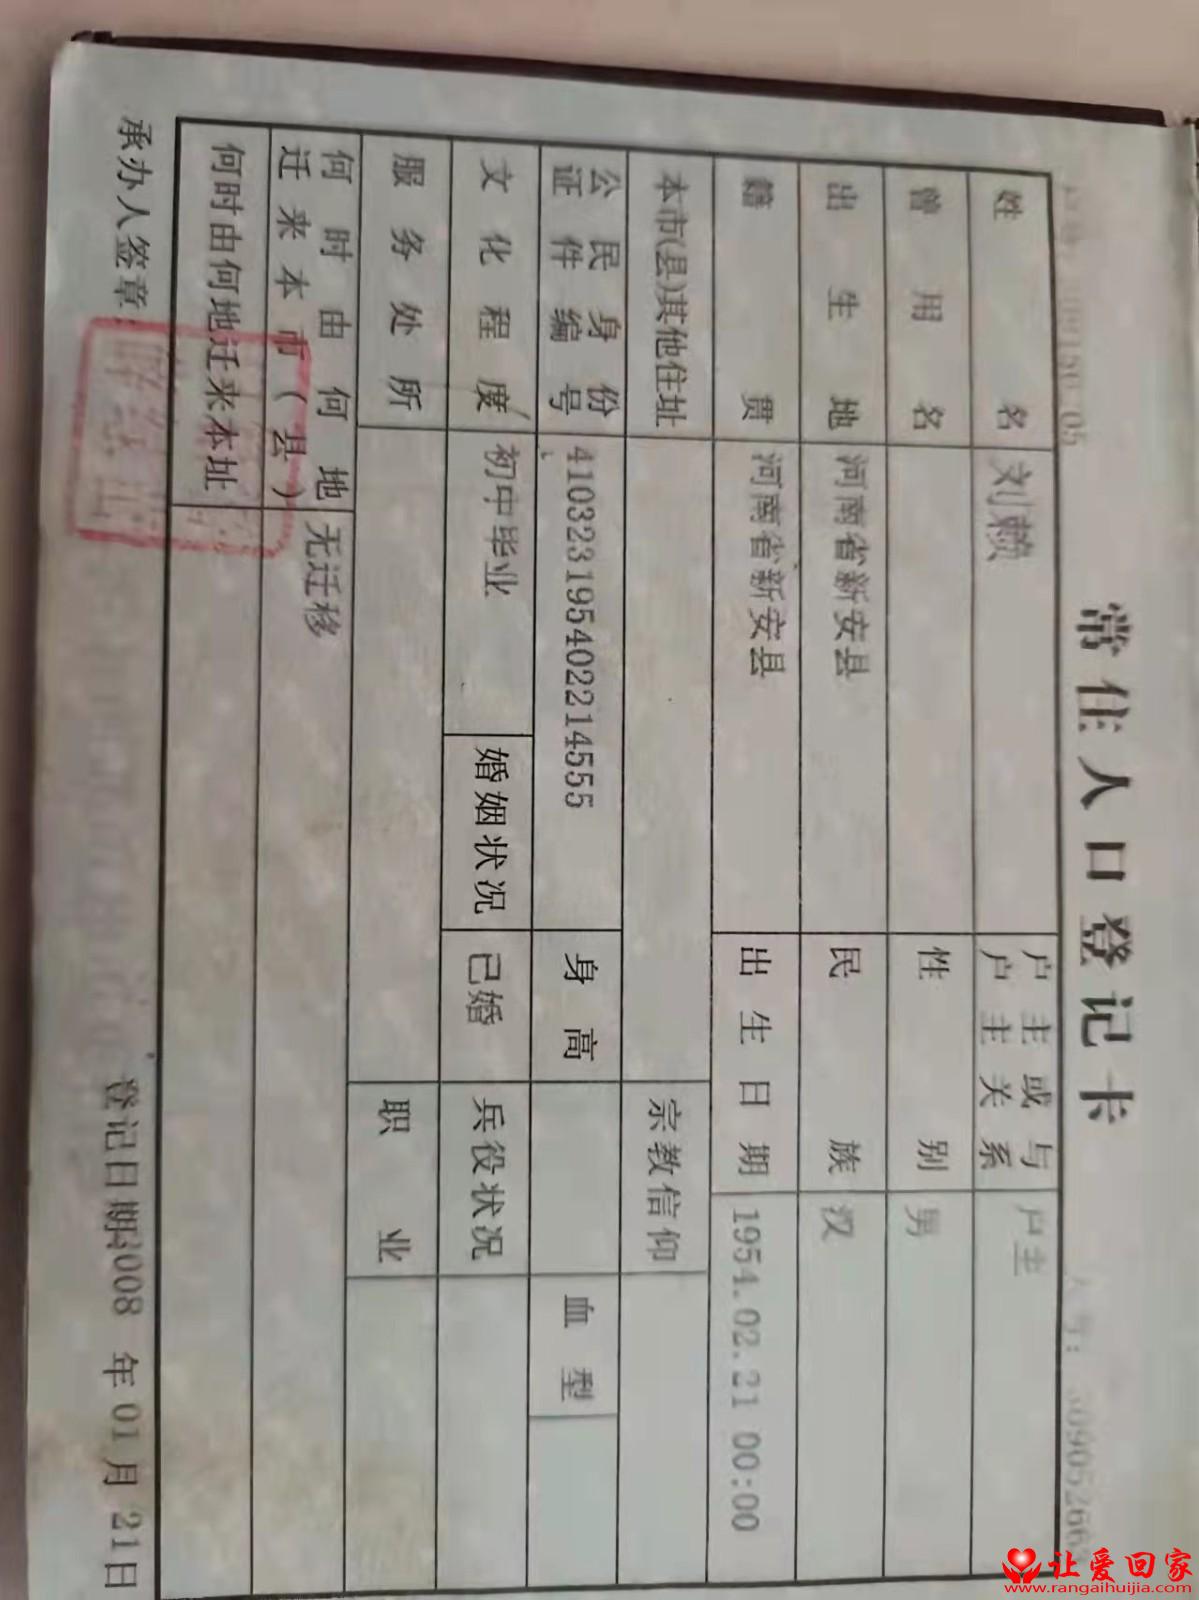 常住人口登记卡
姓名 刘赖 户主或与户主关系 户主
曾用名 性别 男
出生地 河南省新安县 民族 汉
籍贯 河南省新安县 出生日期 1954.02.21 00:00
本市(县)其他住址 宗教信仰
公民身份证件编号 410323195402214555 身高 血型
文化程度 初中毕业 婚姻状况 已婚 兵役状况
服务处所 职业
何时由何地迁来本市(县) 无迁移
何时由何地迁来本址
承办人签章: 登记日期:2008 年 01 月 21日
让爱回家
www.rangaihuijia.com